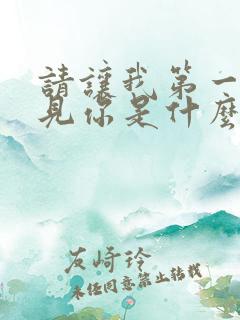 請讓我第一
見你是什麼
友崎玲
未经同意禁止转载